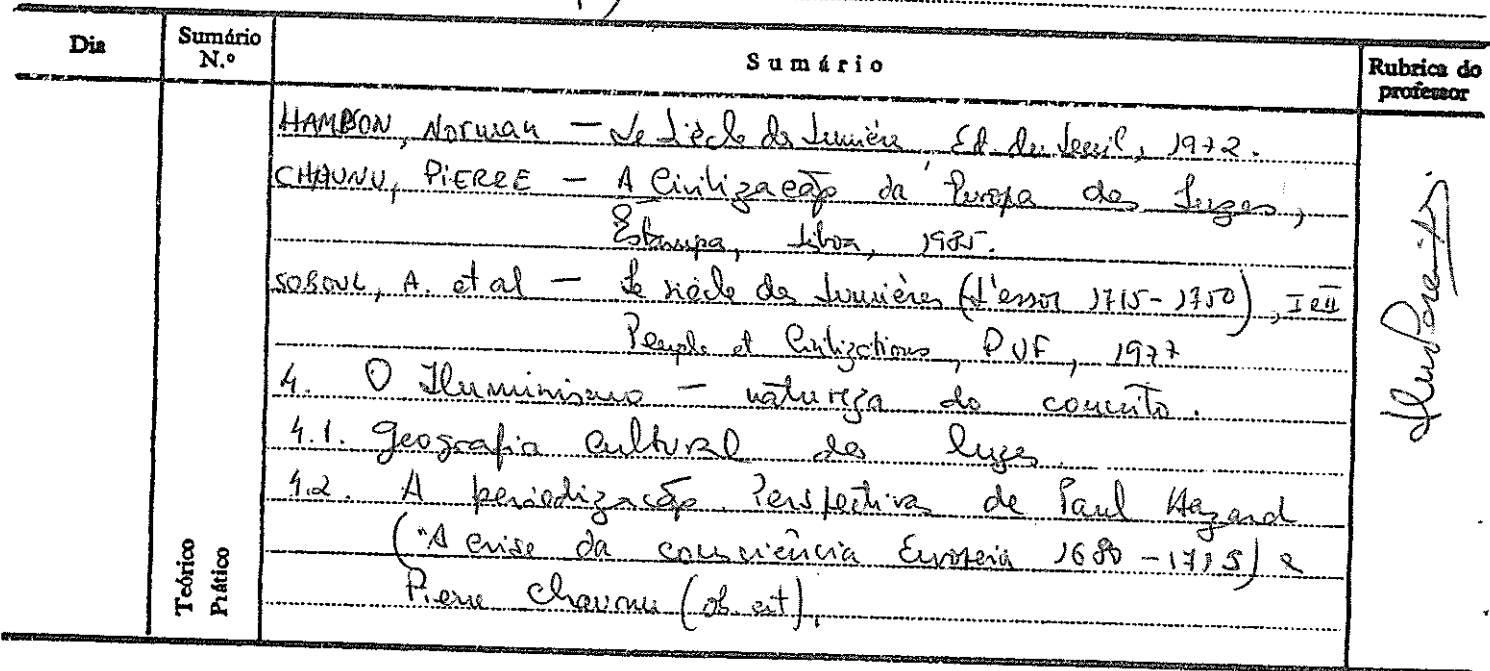 Dia
Sumário N.º
Sumário
Rubrica do professor
HAMPSON, Norman — Le Siècle des Lumière, Ed. du Seuil, 1972.
CHAUNU, PIERRE — A Civilização da Europa das Luzes,
Estampa, Lisboa, 1985.
SOBOUL, A. et al — Le siècle des Lumières (L'essor 1715-1750), I e II
Peuple et Civilizations, PUF, 1977
4. O Iluminismo — natureza do conceito.
4.1. Geografia Cultural das luzes.
4.2. A periodização. Perspectivas de Paul Hazard
("A crise da consciência Europeia 1680-1715) e
Pierre Chaunu (ob. cit).
Teórico
Prático